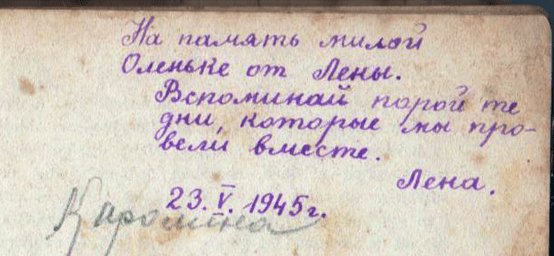 На память милой
Оленьке от Лены.
Вспоминай порой те
дни, которые мы про-
вели вместе.
Лена.
23. V. 1945г.